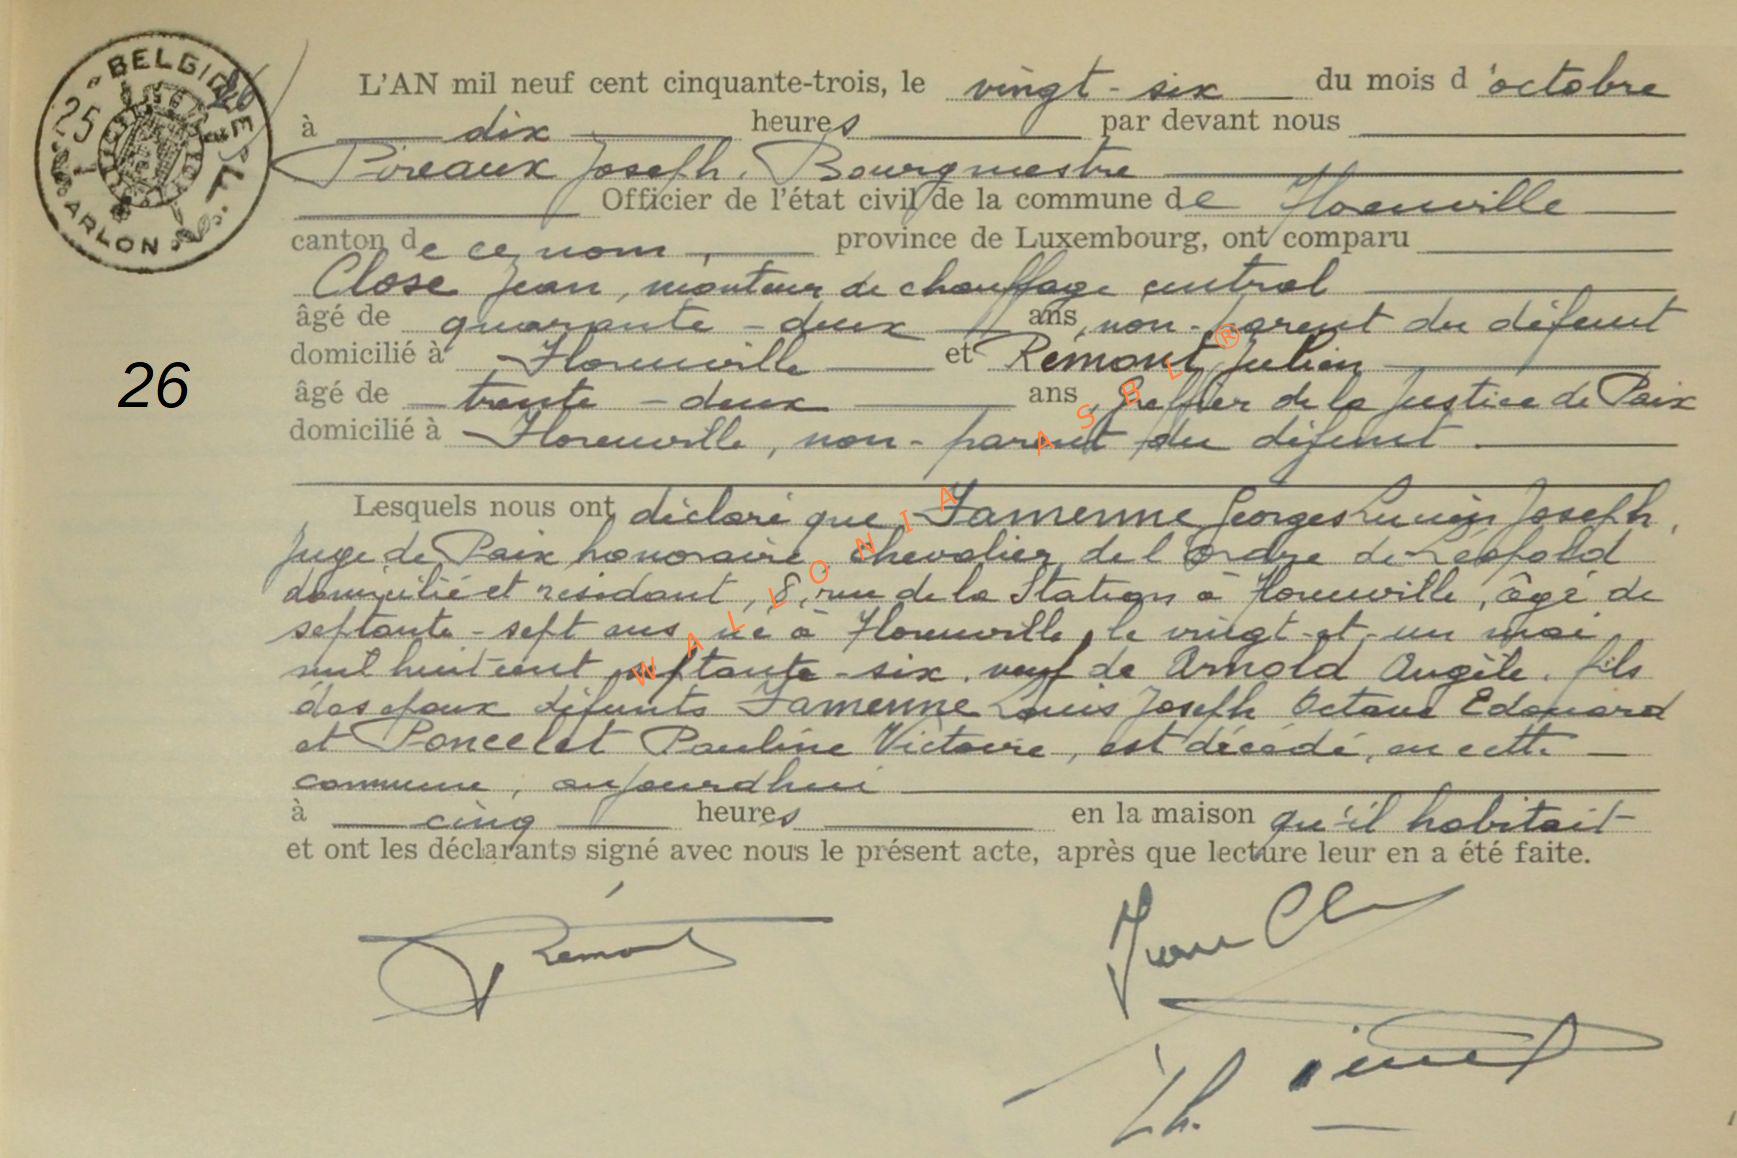 BELGIQUE
25
ARLON
26
L'AN mil neuf cent cinquante-trois, le vingt-six du mois d'octobre
à dix heures par devant nous
Pireaux Joseph, Bourgmestre
Officier de l'état civil de la commune de Florenville
canton de ce nom, province de Luxembourg, ont comparu
Close Jean, monteur de chauffage central
âgé de quarante-deux ans, non-parent du défunt
domicilié à Florenville et Rémont Julien
âgé de trente-deux ans, greffier de la Justice de Paix
domicilié à Florenville, non-parent du défunt.
Lesquels nous ont déclaré que Famenne Georges Lucien Joseph,
Juge de Paix honoraire, chevalier de l'Ordre de Léopold
domicilié et résidant, 8, rue de la Station à Florenville, âgé de
septante-sept ans, né à Florenville, le vingt-et-un mai
mil huit cent septante-six, veuf de Arnold Angèle, fils
des époux défunts Famenne Louis Joseph Octave Edouard
et Poncelet Pauline Victoire, est décédé, en cette
commune, aujourdhui
à cinq heures en la maison qu'il habitait
et ont les déclarants signé avec nous le présent acte, après que lecture leur en a été faite.
Rémont
Jean
WALLONIA ASBL ®